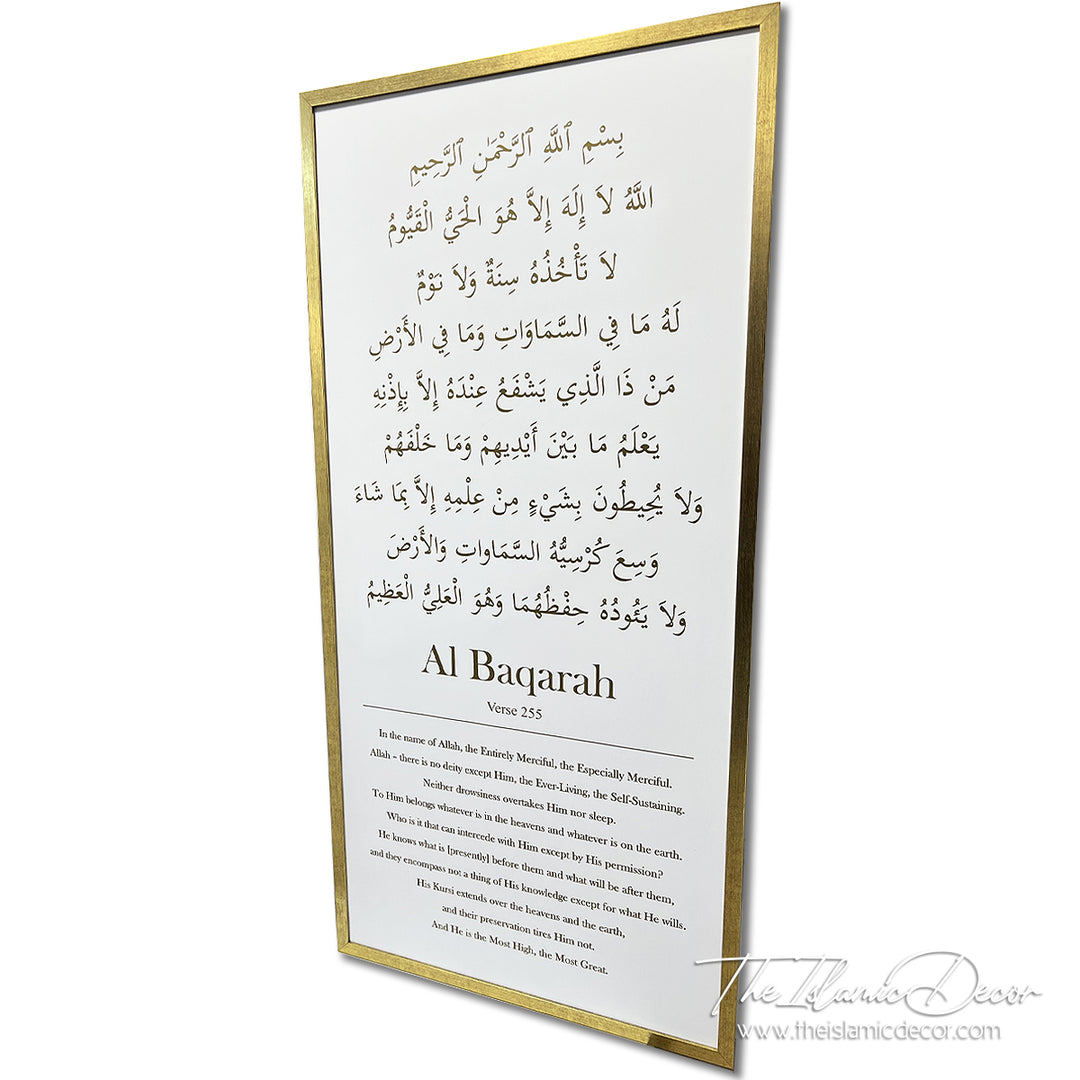 بِسْمِ ٱللَّهِ ٱلرَّحْمَـٰنِ ٱلرَّحِيمِ
اللَّهُ لاَ إِلَهَ إِلاَّ هُوَ الْحَيُّ الْقَيُّومُ
لاَ تَأْخُذُهُ سِنَةٌ وَلاَ نَوْمٌ
لَهُ مَا فِي السَّمَاوَاتِ وَمَا فِي الأَرْضِ
مَنْ ذَا الَّذِي يَشْفَعُ عِنْدَهُ إِلاَّ بِإِذْنِهِ
يَعْلَمُ مَا بَيْنَ أَيْدِيهِمْ وَمَا خَلْفَهُمْ
وَلاَ يُحِيطُونَ بِشَيْءٍ مِنْ عِلْمِهِ إِلاَّ بِمَا شَاءَ
وَسِعَ كُرْسِيُّهُ السَّمَاواتِ وَالأَرْضَ
وَلاَ يَئُودُهُ حِفْظُهُمَا وَهُوَ الْعَلِيُّ الْعَظِيمُ
Al Baqarah
Verse 255
In the name of Allah, the Entirely Merciful, the Especially Merciful.
Allah – there is no deity except Him, the Ever-Living, the Self-Sustaining.
Neither drowsiness overtakes Him nor sleep.
To Him belongs whatever is in the heavens and whatever is on the earth.
Who is it that can intercede with Him except by His permission?
He knows what is [presently] before them and what will be after them,
and they encompass not a thing of His knowledge except for what He wills.
His Kursi extends over the heavens and the earth,
and their preservation tires Him not.
And He is the Most High, the Most Great.
The Islamic Decor
www.theislamicdecor.com